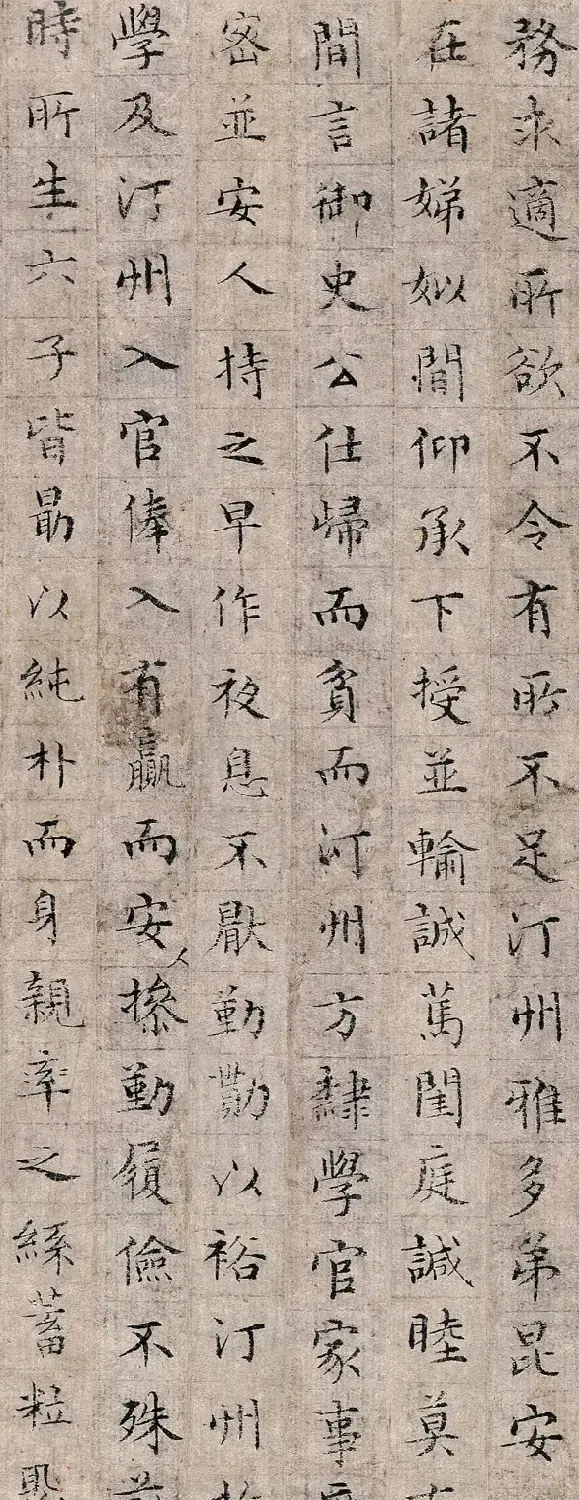 務求適所欲不令有所不足汀州雅多弟昆安
在諸娣姒間仰承下授並輸誠篤閨庭諴睦莫
間言御史公仕歸而貧而汀州方隸學官家事
密並安人持之早作夜息不厭勤勩以裕汀州
學及汀州入官俸入有贏而安人操勤履儉不殊
時所生六子皆勗以純朴而身親率之絲蓄粒